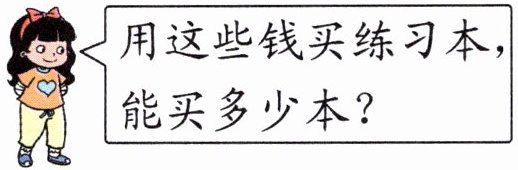 用这些钱买练习本，
能买多少本？